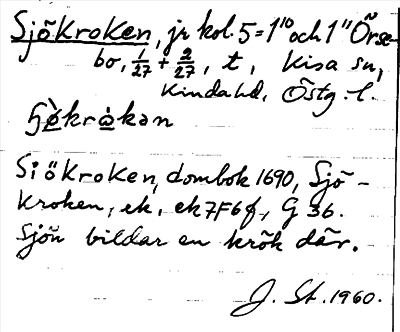 Sjökroken, jr kol. 5 = 1¹⁰ och 1¹¹ Örse-
bo, 1/27 + 2/27, t, Kisa sn,
Kinda hd, Östg. l.
Siökroken, dombok 1690, Sjö-
kroken, ek, ek 7F6f, G 36.
Sjön bildar en krök där.
J. St. 1960.